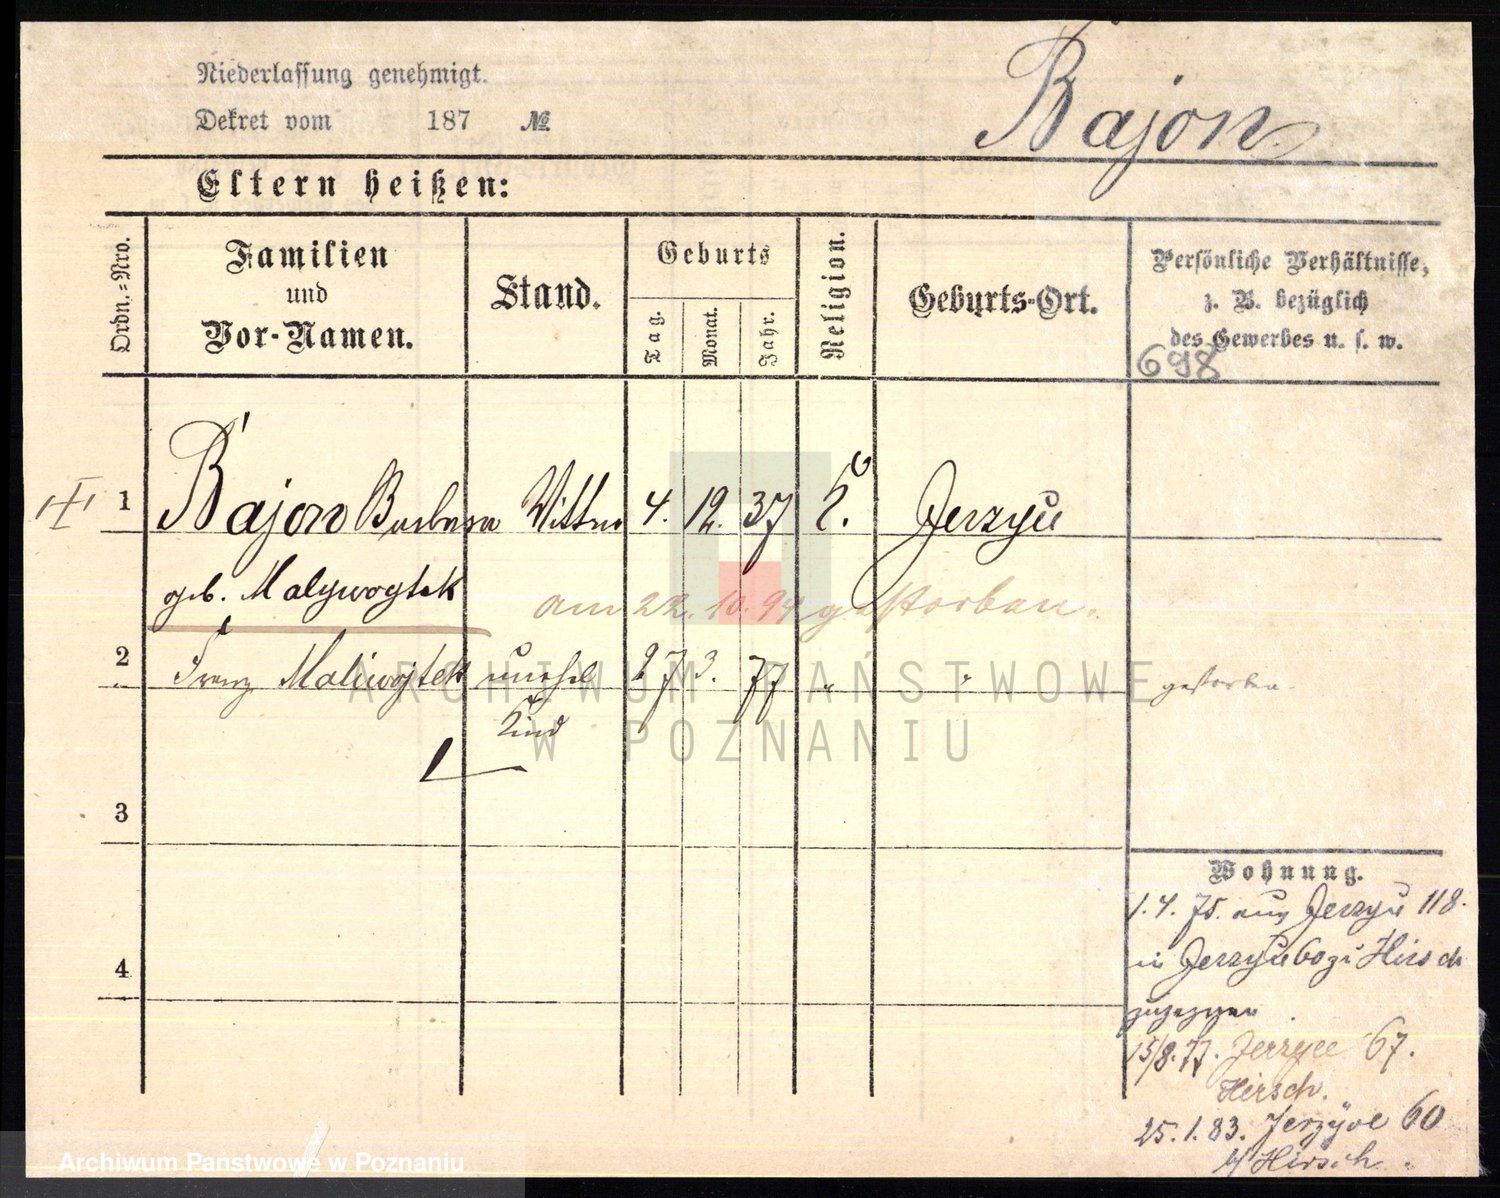 Bajon
Niederlassung genehmigt.
Dekret vom 187 №
Eltern heißen:
Ordn.-Nro.
Familien
und
Vor-Namen.
Stand.
Geburts
Tag.
Monat.
Jahr.
Religion.
Geburts-Ort.
Persönliche Verhältnisse,
z. B. bezüglich
des Gewerbes u. s. w.
698
1 Bajon Barbara Wittwe 4. 12. 37 k. Jerzyce
geb. Malywogtek
am 22. 10. 94 gestorben.
2 Franz Maliwojtek unehel 27 3. 77 " " gestorben
Kind
3
4
Wohnung.
1.4.75. aus Jerzyce 118.
in Jerzyce 60 Hirsch
zugezogen
15/8. 77. Jerzyce 67.
Hirsch.
25.1.83. Jerzyce 60
b/ Hirsch.
ARCHIWUM PAŃSTWOWE
W POZNANIU
Archiwum Państwowe w Poznaniu